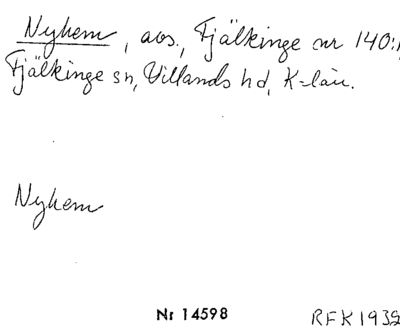 Nyhem, avs., Fjälkinge nr 140:1,
Fjälkinge sn, Villands hd, K-län.
Nyhem
Nr 14598
RFK 1939